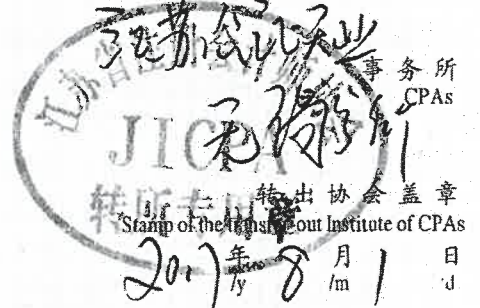 江苏公证天业
事务所
CPAs
江苏省
JICPA
转所专用
转出协会盖章
Stamp of the transfer-out Institute of CPAs
2017年8月1日
/y /m /d